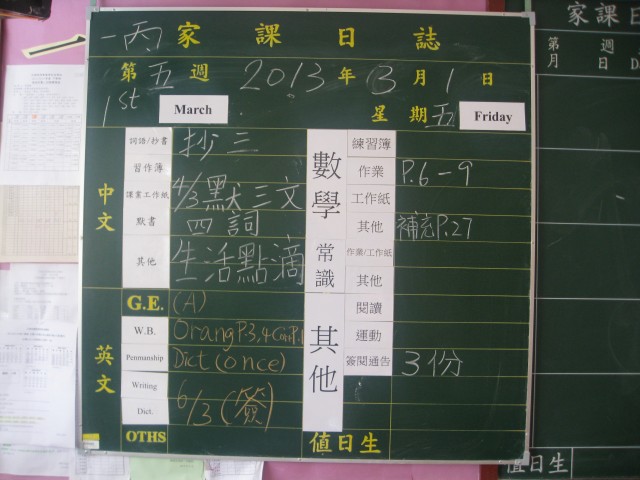 一丙 家課日誌
第五週 2013年3月1日
1st March 星期五 Friday
中文
詞語/抄書 抄三
習作簿
課業工作紙 4/3默三文
默書 四詞
其他 生活點滴
英文
G.E. (A)
W.B. Orang P.3,4
Penmanship Dict (once)
Writing
Dict. 6/3 (簽)
OTHS
數學
練習簿
作業 P.6-9
工作紙
其他 補充P.27
常識
作業/工作紙
其他
其他
閱讀
運動
簽閱通告 3份
值日生
家課日
第 週
月 日
值日生